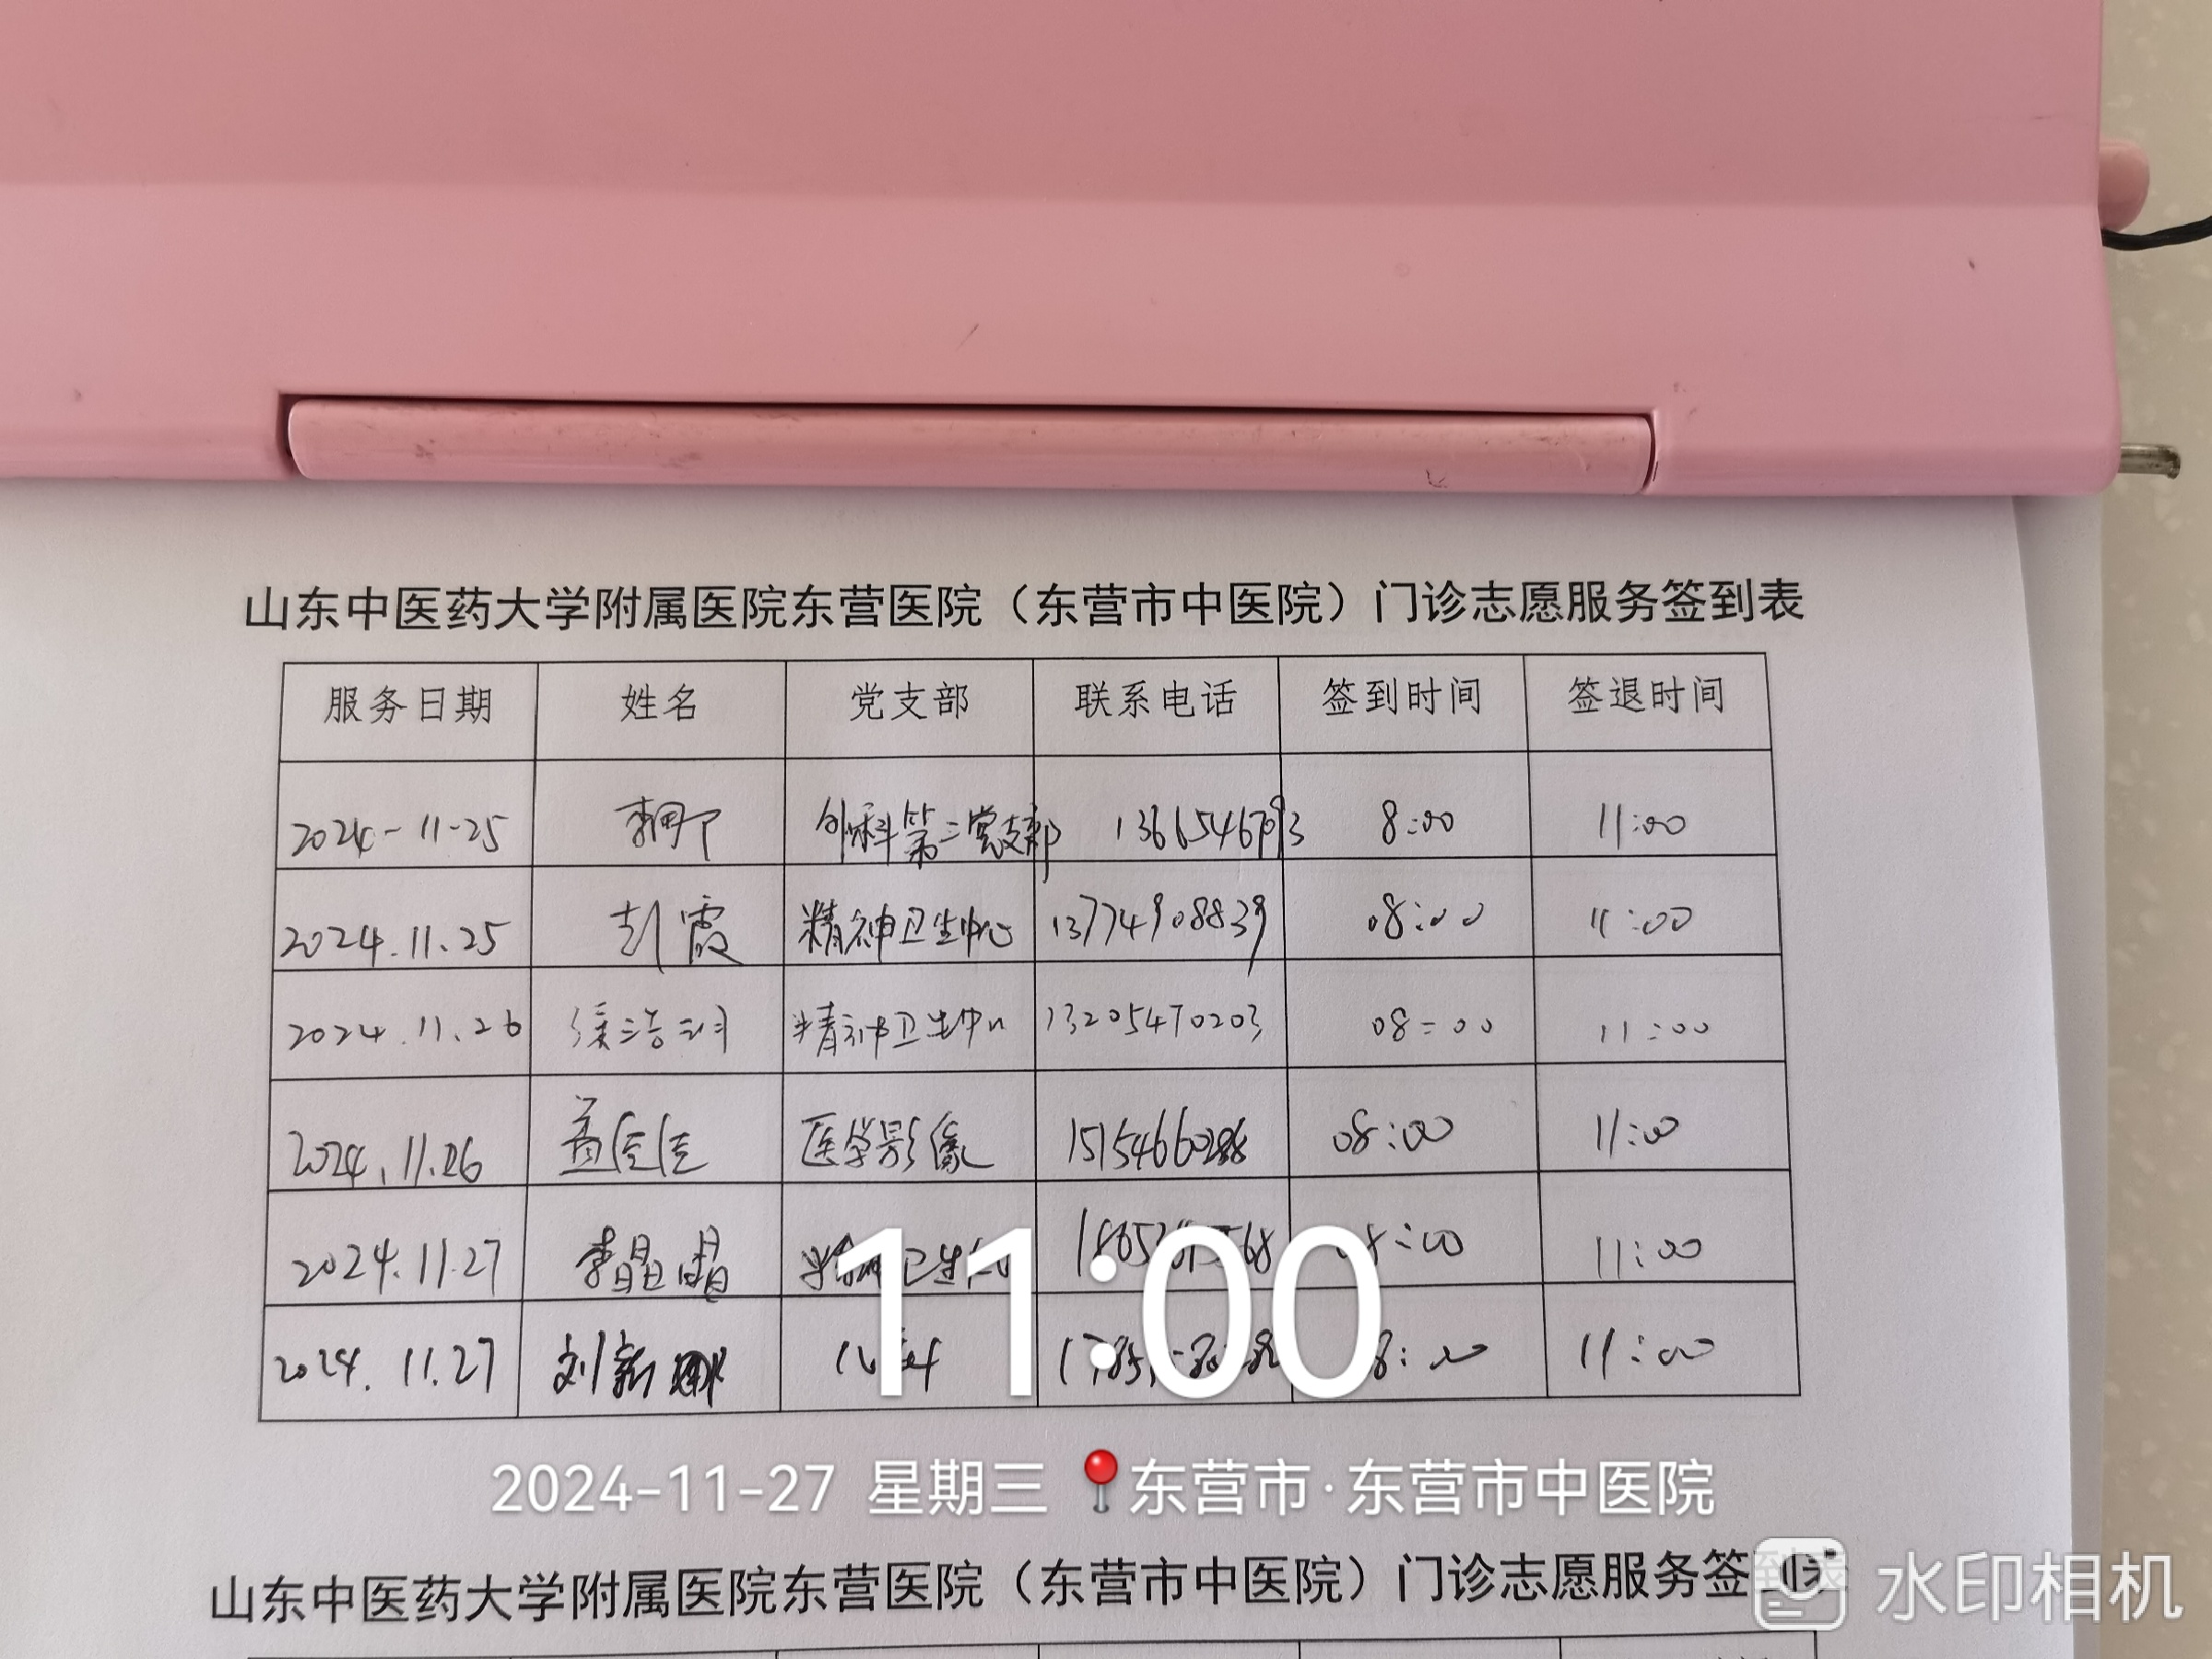 山东中医药大学附属医院东营医院（东营市中医院）门诊志愿服务签到表
服务日期 姓名 党支部 联系电话 签到时间 签退时间
2024-11-25 外科第二党支部 13665467093 8:00 11:00
2024.11.25 彭霞 精神卫生中心 13774908839 08:00 11:00
2024.11.26 精神卫生中心 13205470203 08:00 11:00
2024.11.26 孟佳佳 医学影像 08:00 11:00
2024.11.27 李晶晶 卫生 08:00 11:00
2024.11.27 刘新娜 8:00 11:00
11:00
2024-11-27 星期三 东营市·东营市中医院
山东中医药大学附属医院东营医院（东营市中医院）门诊志愿服务签到表
水印相机